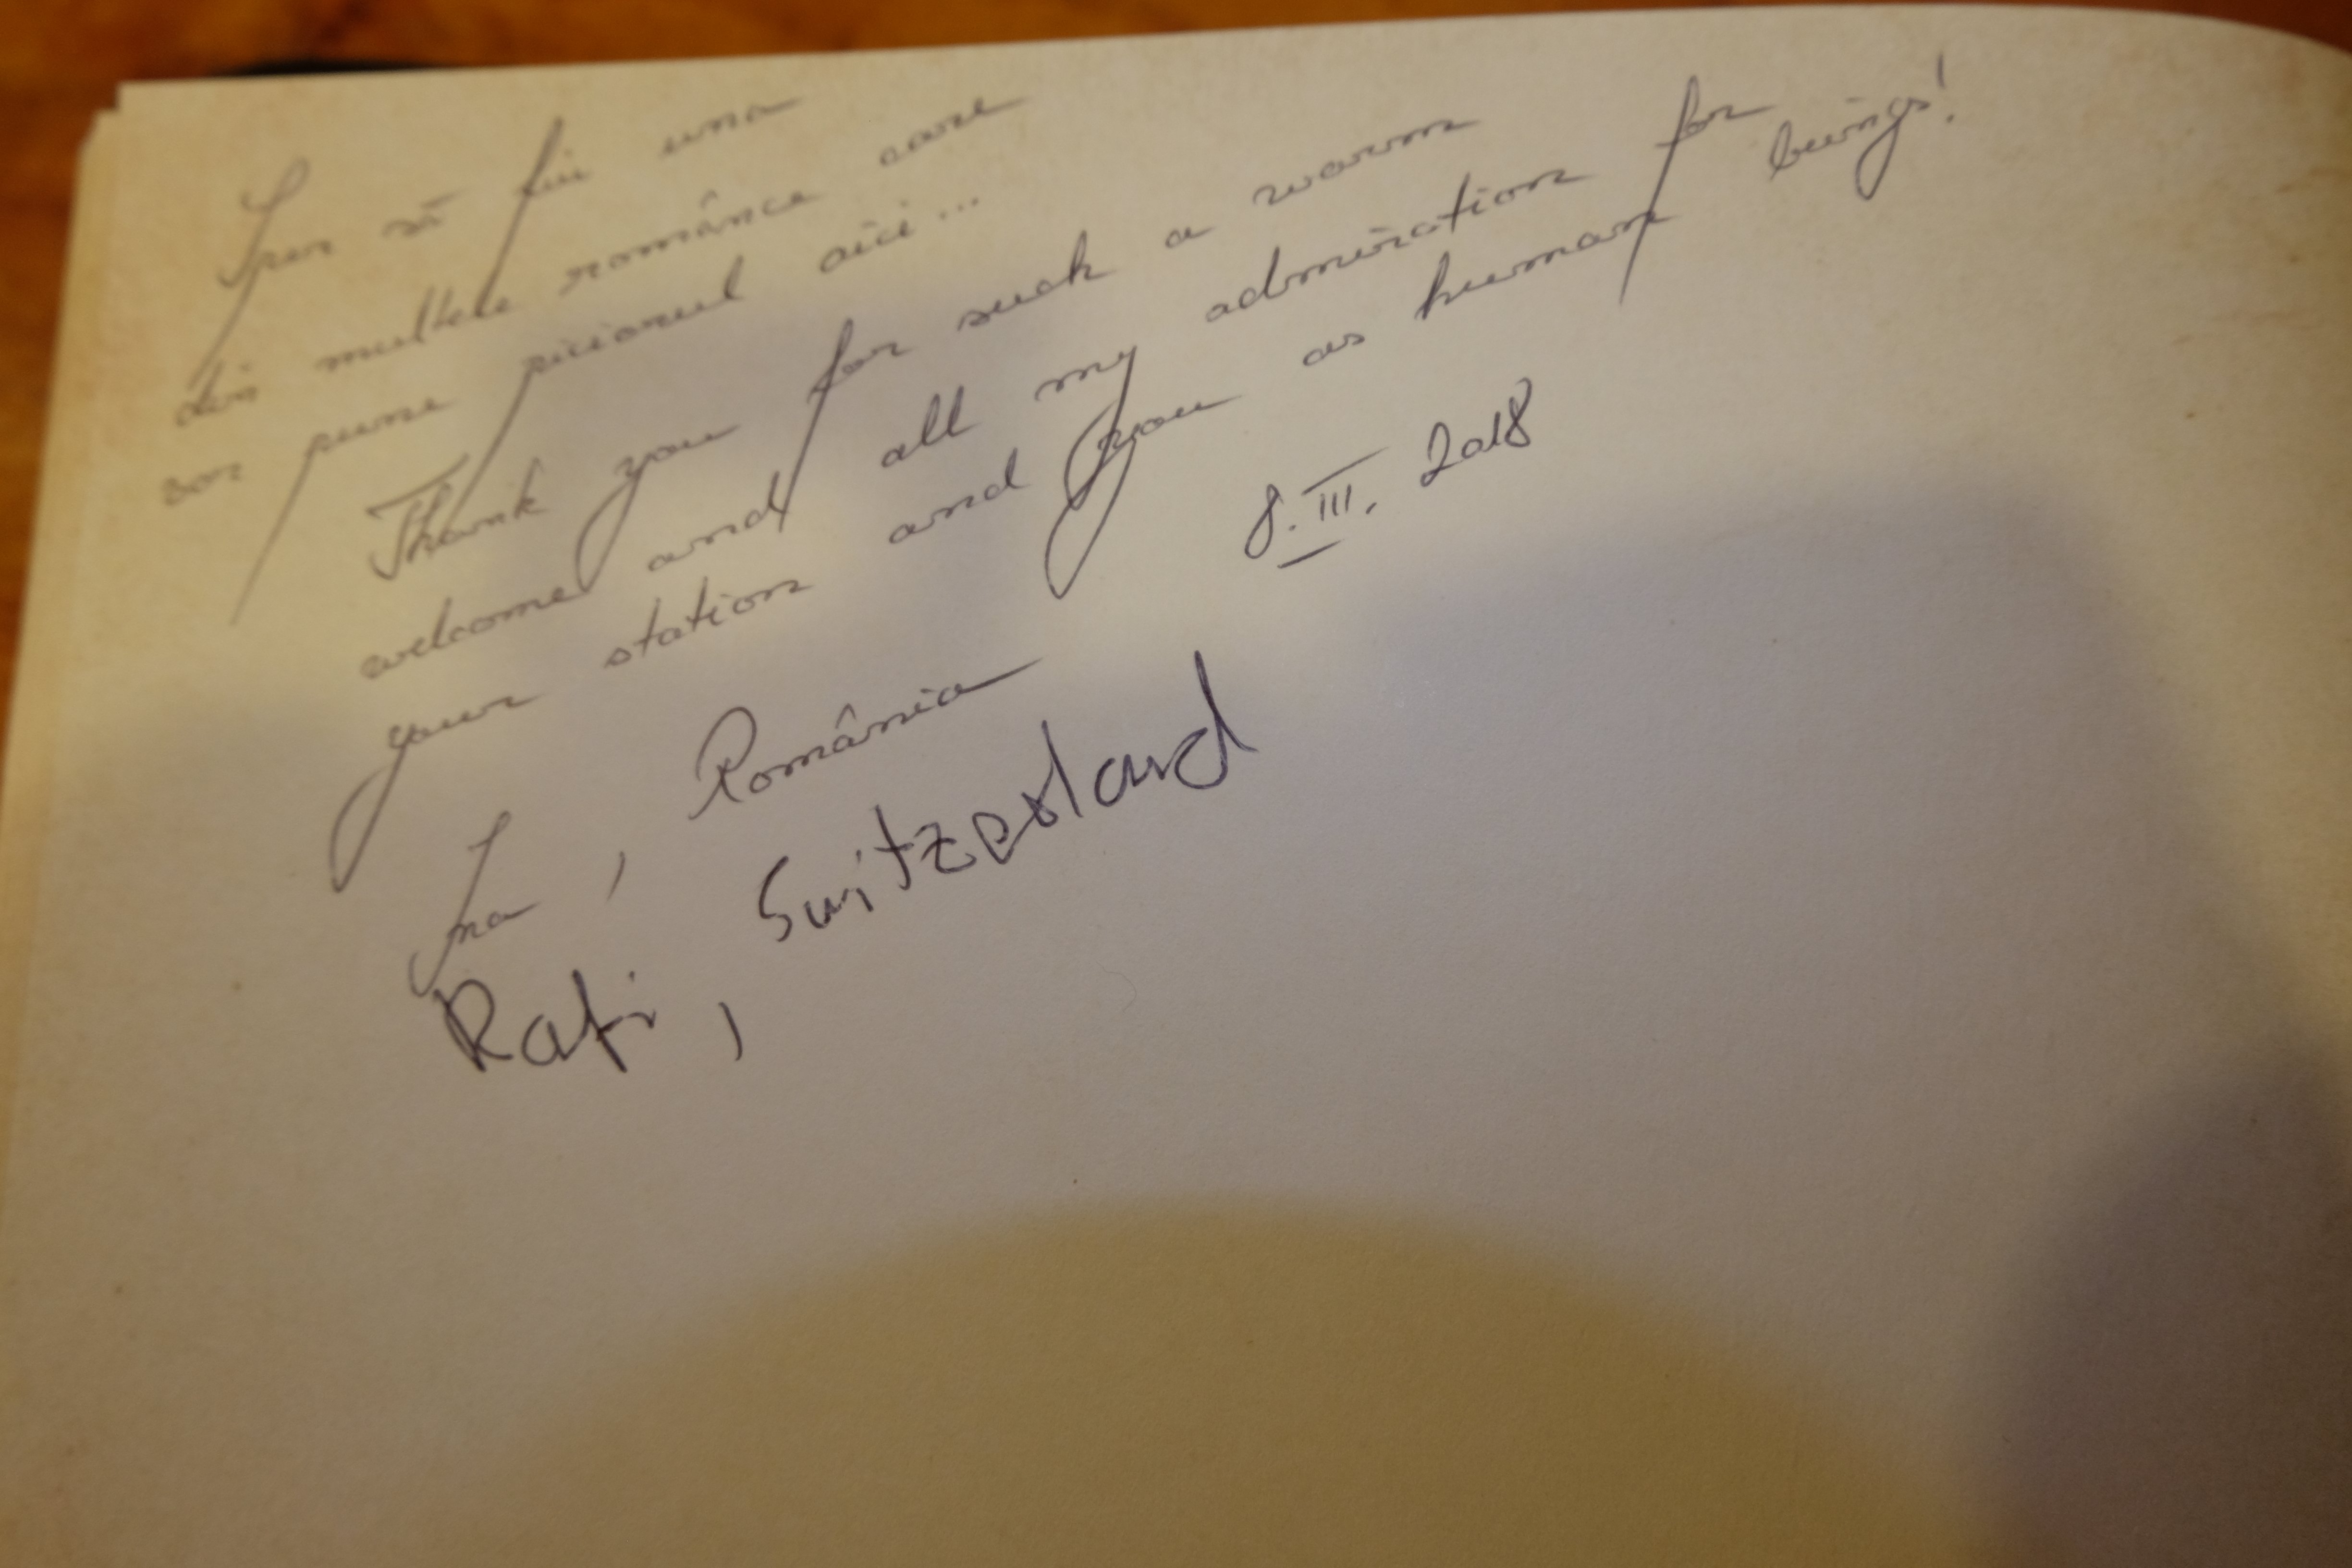 Sper să fiu una
din multele românce care
vor pune piciorul aici...
Thank you for such a warm
welcome and all my admiration for
your station and you as human beings!
8. III. 2018
Ina, România
Rafi, Switzerland